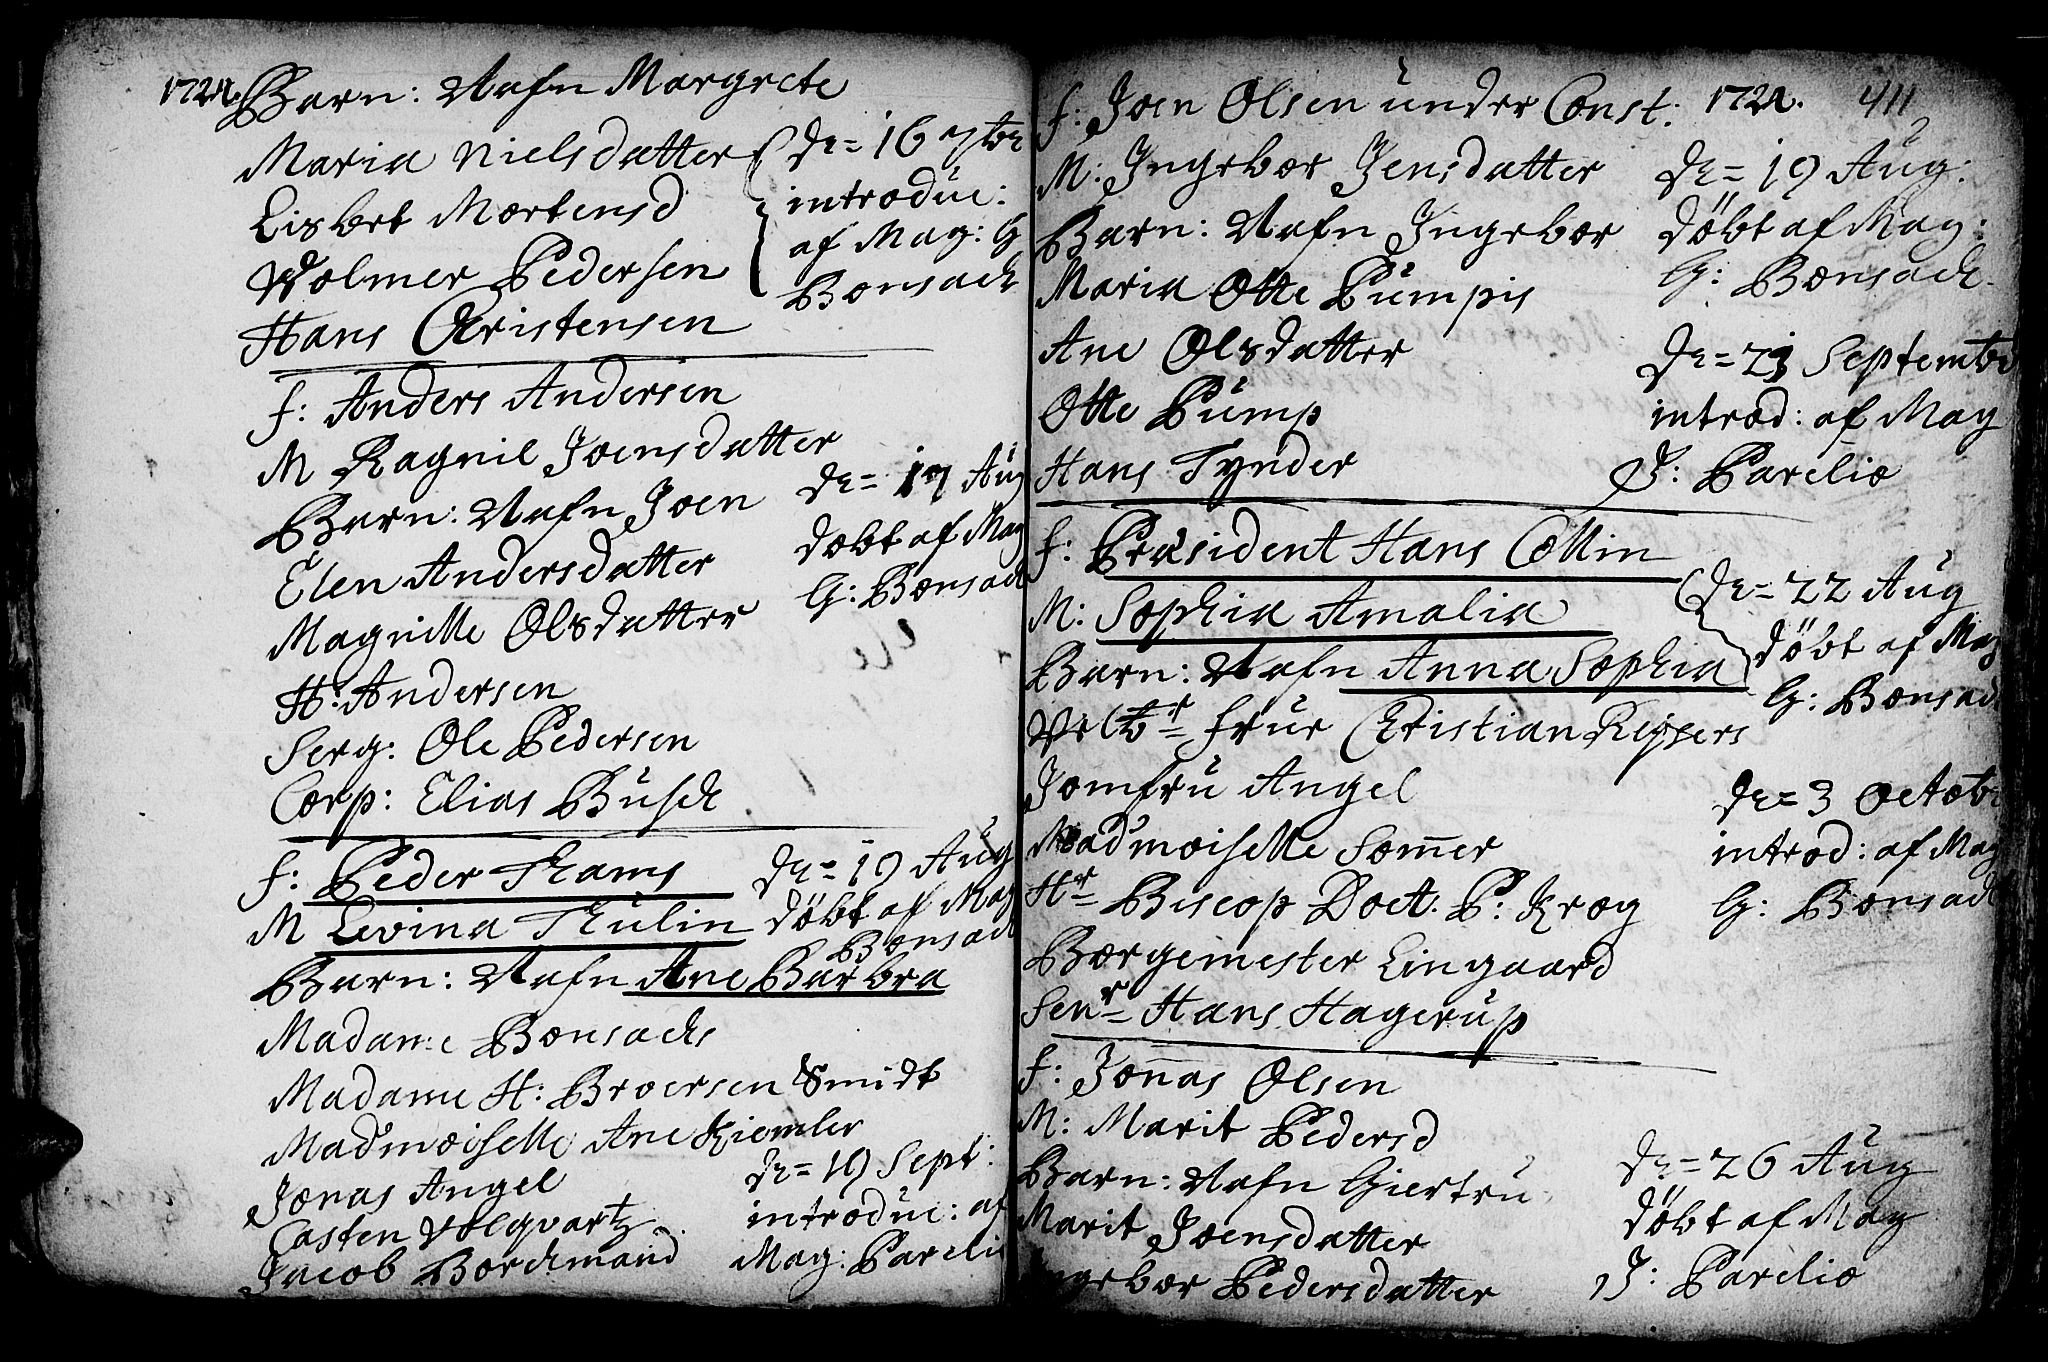 1721.
Barn: Nafn Margrete
Maria Nielsdatter
Lisbet Mortensd
Wolmer Pedersen
Hans Christensen
d. = 16 7br
introduc:
af Mag: G
Bonsach
f: Anders Andersen
M Ragnil Joensdatter
Barn: Nafn Joen
Elen Andersdatter
Magnille Olsdatter
H: Andersen
Serg: Ole Pedersen
Corp: Elias Büsch
d. = 17 Aug
döbt af Mag
G: Bonsach
f: Peder Thams
M Levina Thulin
Barn: Nafn Ane Barbra
Madame Bonsachs
Madame H: Broersen Smidt
Madmoiselle Ane Kiemler
Jonas Angel
Casten Volqvartz
Jacob Borchmand
d. = 19 Aug
döbt af Mag
Bonsach
d. = 19 Sept:
introduc: af
Mag: Parelio
f: Joen Olsen under Const: 1721. 411
M: Ingebor Jensdatter
Barn: Nafn Ingebor
Maria Otte Pumpis
Ane Olsdatter
Otte Pump
Hans Tynder
d. = 19 Aug:
döbt af Mag:
G: Bonsach.
d. = 23 Septembr
introd: af Mag
J: Parelio
f: Præsident Hans Collin
M: Sophia Amalia
Barn: Nafn Anna Sophia
Velbr frue Christian Reysers
Jomfru Angel
Madmoiselle Somer
Hr Biscop Doct. P: Krog
Borgemester Lingaard
Senr Hans Hagerup
d. = 22 Aug
döbt af Mag
G: Bonsach
d. = 3 Octobr
introd: af Mag
G: Bonsach
f: Jonas Olsen
M: Marit Pedersd
Barn: Nafn Giertru
Marit Joensdatter
Ingebor Pedersdatter
d. = 26 Aug
döbt af Mag
J: Parelio